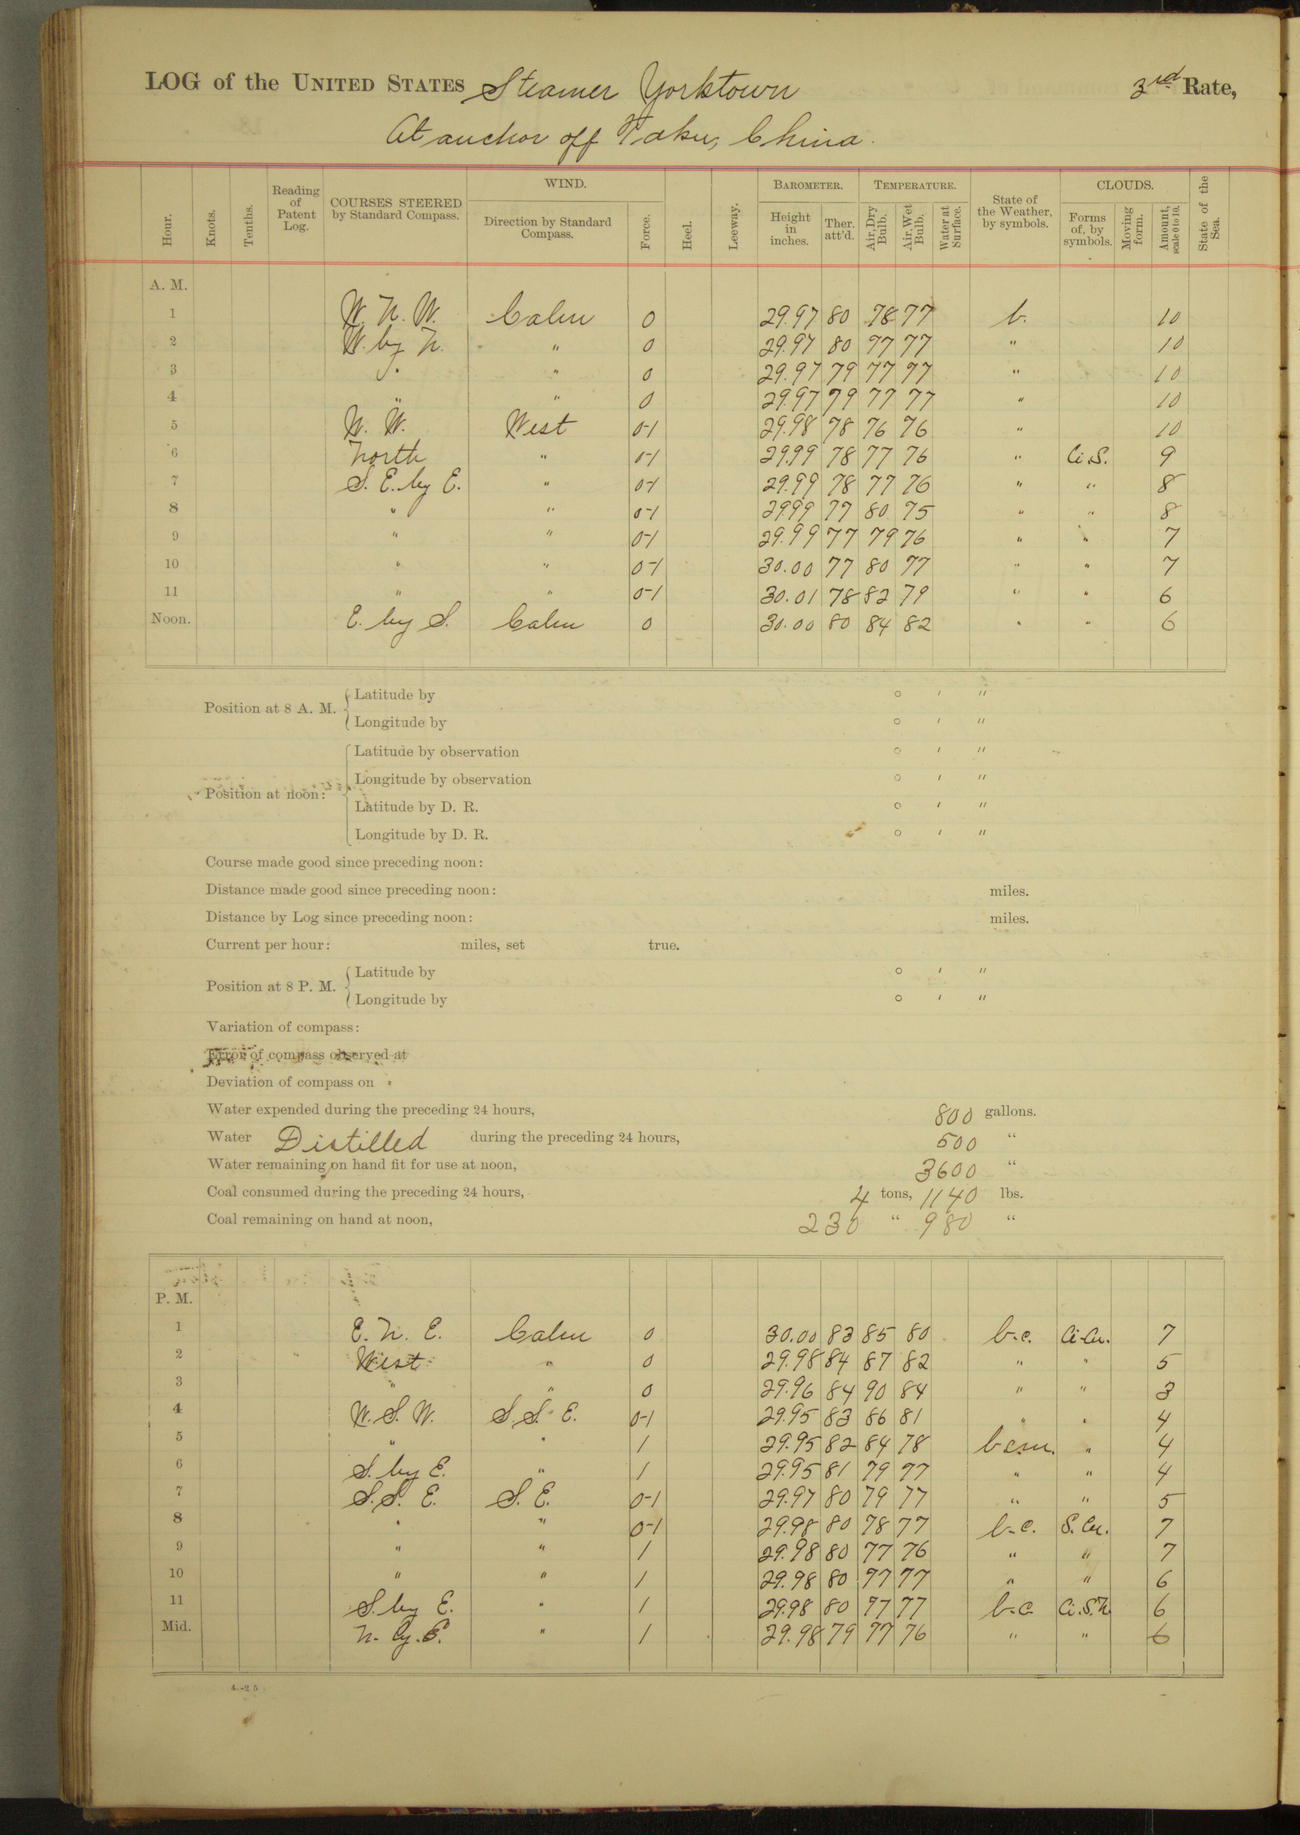 LOG of the UNITED STATES Steamer Yorktown 3rd Rate,
At anchor off Taku, China.
Hour. Knots. Tenths. Reading of Patent Log. COURSES STEERED by Standard Compass. WIND. Direction by Standard Compass. Force. Heel. Leeway. BAROMETER. Height in inches. Ther. att'd. TEMPERATURE. Air, Dry Bulb. Air, Wet Bulb. Water at Surface. State of the Weather, by symbols. CLOUDS. Forms of, by symbols. Moving form. Amount, scale 0 to 10. State of the Sea.
A. M.
1 W. N. W. Calm 0 29.97 80 78 77 b. 10
2 W. by N. " 0 29.97 80 77 77 " 10
3 " " 0 29.97 79 77 77 " 10
4 " " 0 29.97 79 77 77 " 10
5 N. W. West 0-1 29.98 78 76 76 " 10
6 North " 0-1 29.99 78 77 76 " Ci.S. 9
7 S. E. by E. " 0-1 29.99 78 77 76 " " 8
8 " " 0-1 29.99 77 80 75 " " 8
9 " " 0-1 29.99 77 79 76 " " 7
10 " " 0-1 30.00 77 80 77 " " 7
11 " " 0-1 30.01 78 82 79 " " 6
Noon. E. by S. Calm 0 30.00 80 84 82 " " 6
Position at 8 A. M. Latitude by ° ' "
Longitude by ° ' "
Position at noon: Latitude by observation ° ' "
Longitude by observation ° ' "
Latitude by D. R. ° ' "
Longitude by D. R. ° ' "
Course made good since preceding noon:
Distance made good since preceding noon: miles.
Distance by Log since preceding noon: miles.
Current per hour: miles, set true.
Position at 8 P. M. Latitude by ° ' "
Longitude by ° ' "
Variation of compass:
Error of compass observed at
Deviation of compass on
Water expended during the preceding 24 hours, 800 gallons.
Water Distilled during the preceding 24 hours, 500 "
Water remaining on hand fit for use at noon, 3600 "
Coal consumed during the preceding 24 hours, 4 tons, 1140 lbs.
Coal remaining on hand at noon, 230 " 980 "
P. M.
1 E. N. E. Calm 0 30.00 83 85 80 b-c. Ci-Cu. 7
2 West " 0 29.98 84 87 82 " " 5
3 " " 0 29.96 84 90 84 " " 3
4 W. S. W. S. S. E. 0-1 29.95 83 86 81 " " 4
5 " " 1 29.95 82 84 78 b.c.m. " 4
6 S. by E. " 1 29.95 81 79 77 " " 4
7 S. S. E. S. E. 0-1 29.97 80 79 77 " " 5
8 " " 0-1 29.98 80 78 77 b-c. S.Cu. 7
9 " " 1 29.98 80 77 76 " " 7
10 " " 1 29.98 80 77 77 " " 6
11 S. by E. " 1 29.98 80 77 77 b-c. Ci.S.N. 6
Mid. N. by E. " 1 29.98 79 77 76 " " 6
4-25